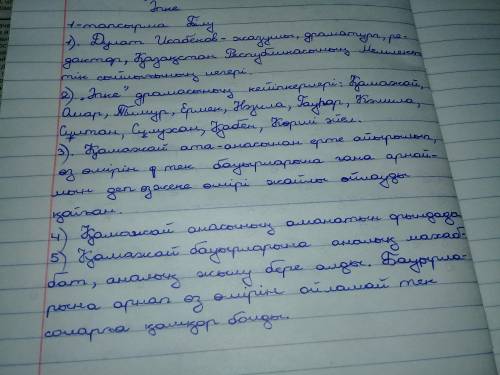 Әпке
1-тапсырма Білу
1). Дулат Исабеков - жазушы, драматург, ре-
дактор, Қазақстан Республикасының Мемлекет
тік сыйлығының иегері.
2) „Әпке" драмасының кейіпкерлері: Қамажай,
Омар, Тимур, Ермек, Нәзила, Гауһар, Кәмила,
Сұлтан, Сұлухан, Қабен, Кәрий әйел.
3). Қамажай ата-анасынан ерте айырылып,
өз өмірін тек бауырларына ғана арнай-
мын деп өзіне өмірі жайлы ойлауды
қойған.
4) Қамажай анасының аманатын орындады
5) Қамажай бауырларына аналық махаб-
бат, аналық жылу бере алды. Бауырла-
рына арнап өз өмірін ойламай тек
соларға қамқор болды.